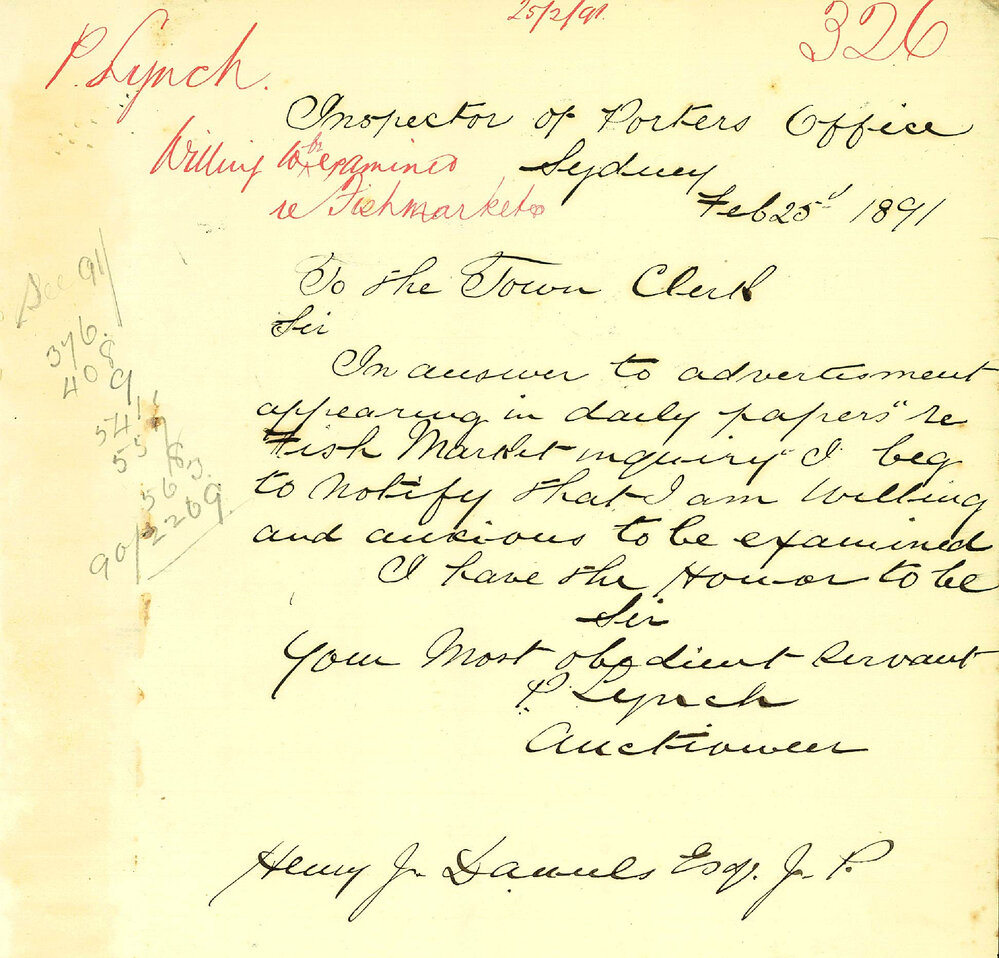 25/2/91.
326
P. Lynch.
Inspector of Porters Office
Willing to be examined
Sydney
re Fishmarkets
Feb 25d 1891
See 91/
376.
408
9
541
557
563.
90/2269.
To the Town Clerk
Sir
In answer to advertisment
appearing in daily papers "re
Fish Market inquiry" I beg
to notify that I am Willing
and anxious to be examined
I have the Honor to be
Sir
Your Most obedient Servant
P Lynch
Auctioneer
Henry J. Daniels Esq. J. P.